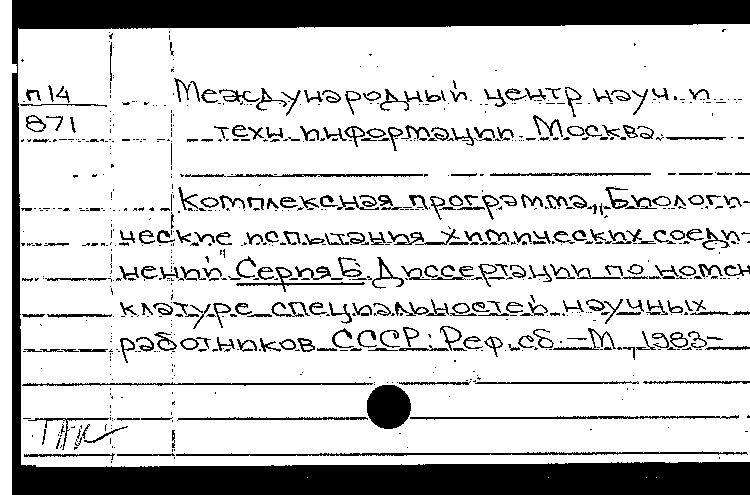 п14
871
Международный центр науч. и
техн. информации. Москва.
Комплексная программа „Биологи-
ческие испытания химических соеди-
нений" Серия Б. Диссертации по номен
клатуре специальностей научных
работников СССР: Реф. сб. – М, 1983-